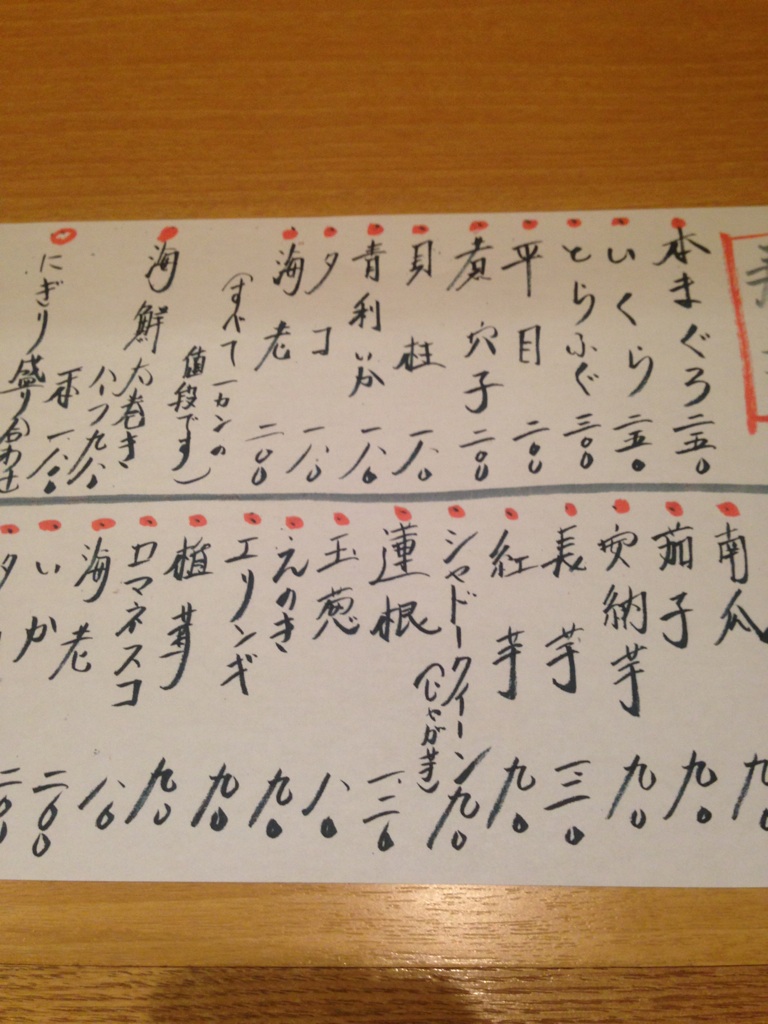 本まぐろ 二五〇
いくら 二五〇
とらふぐ 三〇〇
平目 二〇〇
煮穴子 二〇〇
貝柱 一八〇
青利いか 一八〇
タコ 一八〇
海老 二〇〇
(すべて一カンの
値段です)
海鮮太巻き
ハーフ九八〇
一本 一八〇〇
にぎり盛り合わせ
南瓜 九〇
茄子 九〇
安納芋 九〇
長芋 一三〇
紅芋 九〇
シャドークイーン 九〇
(じゃが芋)
蓮根 一二〇
玉葱 八〇
えのき 九〇
エリンギ 九〇
椎茸 九〇
ロマネスコ 九〇
海老 一八〇
いか 二〇〇
二〇〇